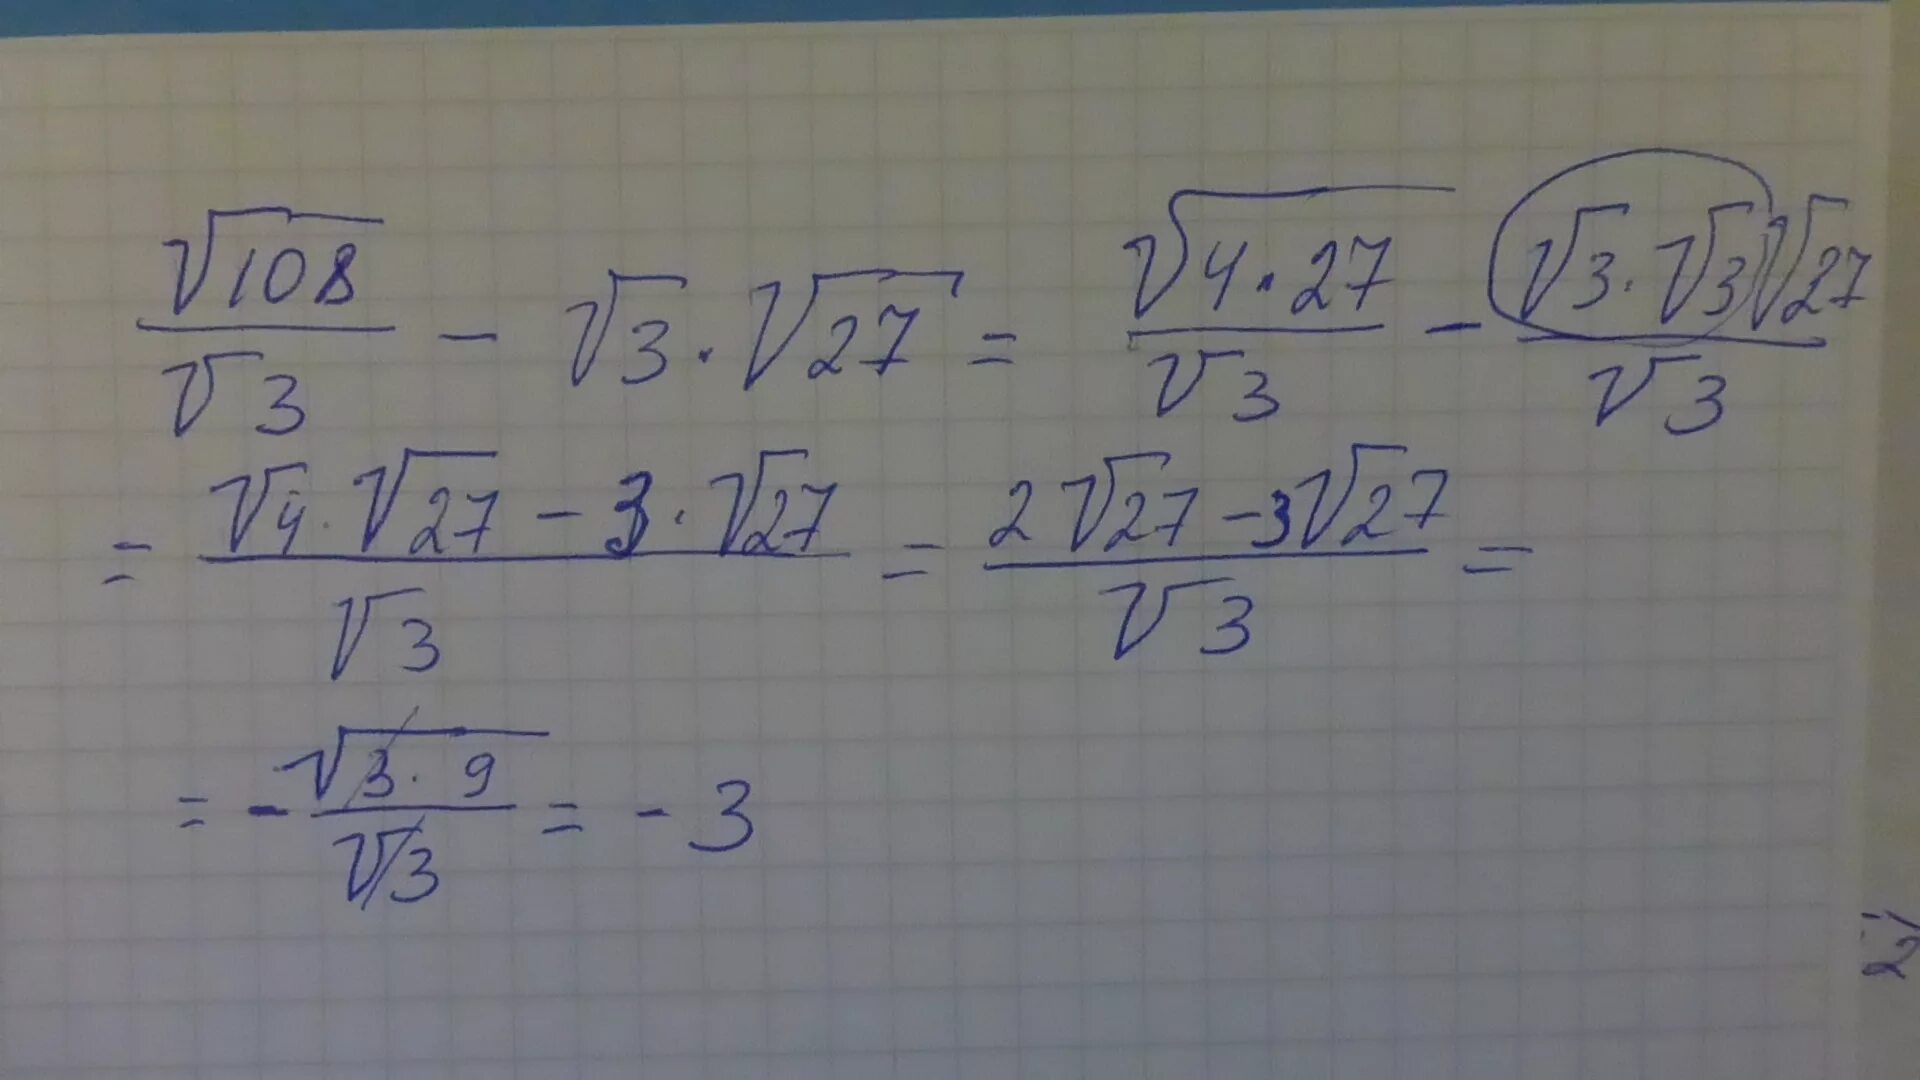 √108/√3 - √3 · √27 = √(4·27)/√3 - √3·√3√27/√3
= (√4·√27 - 3·√27)/√3 = (2√27 - 3√27)/√3 =
= -√(3·9)/√3 = -3
2